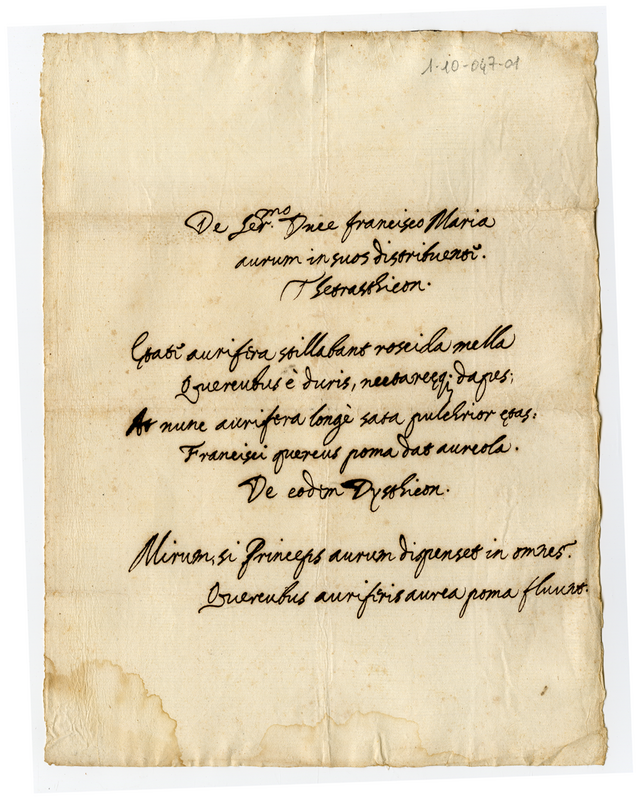 1-10-047-01
De Ser.mo Duce francisco Maria
aurum in suos distribuentẽ.
Thetrasthicon.
Ętatẽ aurifera stillabant roscida mella
Quercubus è duris, nectareęq; dapes;
At nunc aurifera longè sata pulchrior ętas:
Francisci quercus poma dat aureola.
De eodem Dysthicon.
Mirum, si Princeps aurum dispenset in omnes.
Quercubus auriferis aurea poma fluunt.